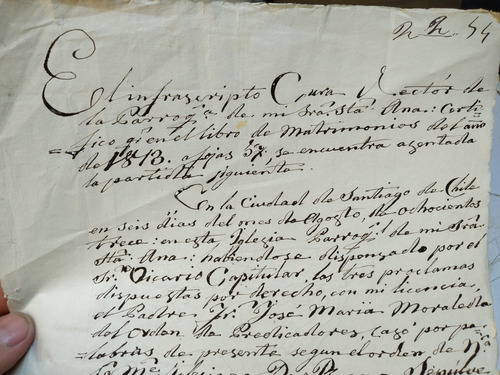 54
El infrascripto Cura Rector de
la Parroqª. de mi Srâ. Stâ. Ana: Certi-
fico qͤ en el libro de Matrimonios del año
de 1813. a fojas 37, se encuentra asentada
la partida siguiente.
En la Ciudad de Santiago de Chile
en seis dias del mes de Agosto, de ochocientos
trece: en esta Iglesia Parroqˡ. de mi Srâ
Stâ. Ana: habiendose dispensado por el
Sr. Vicario Capitular, las tres proclamas
dispuestas por derecho, con mi licencia,
el Padre, Fr. Jose Maria Moraleda
del Orden de Predicadores, casó por pa-
labras de presente segun el orden de
Sta Me Iglesia